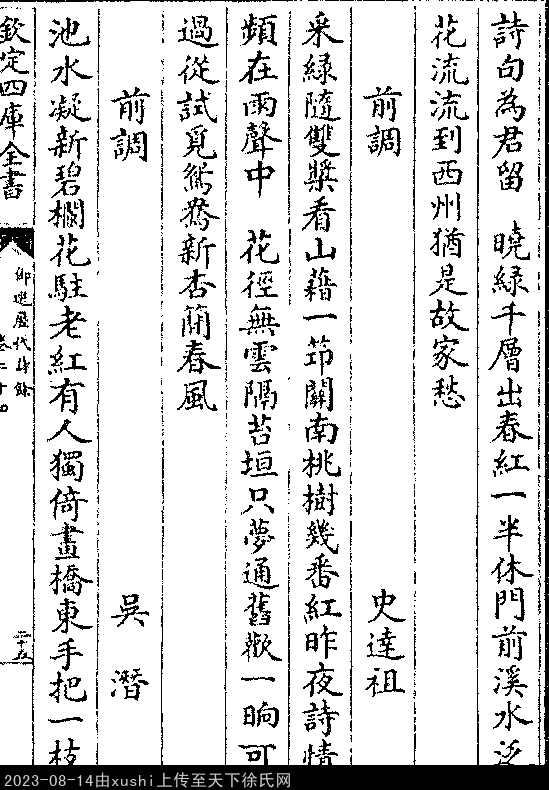 詩句為君留　曉綠千層出春紅一半休門前溪水泛
花流流到西州猶是故家愁
前調　史達祖
采綠隨雙槳看山藉一笻闗南桃樹幾番紅昨夜詩情
頻在雨聲中　花徑無雲隔苔垣只夢通舊歡一晌可
過從試覓鴛鴦新杏蕳春風
前調　吳潛
池水凝新碧欄花駐老紅有人獨倚畫橋東手把一枝
欽定四庫全書
御選歷代詩餘
卷二十
二十五
2023-08-14由xushi上传至天下徐氏网